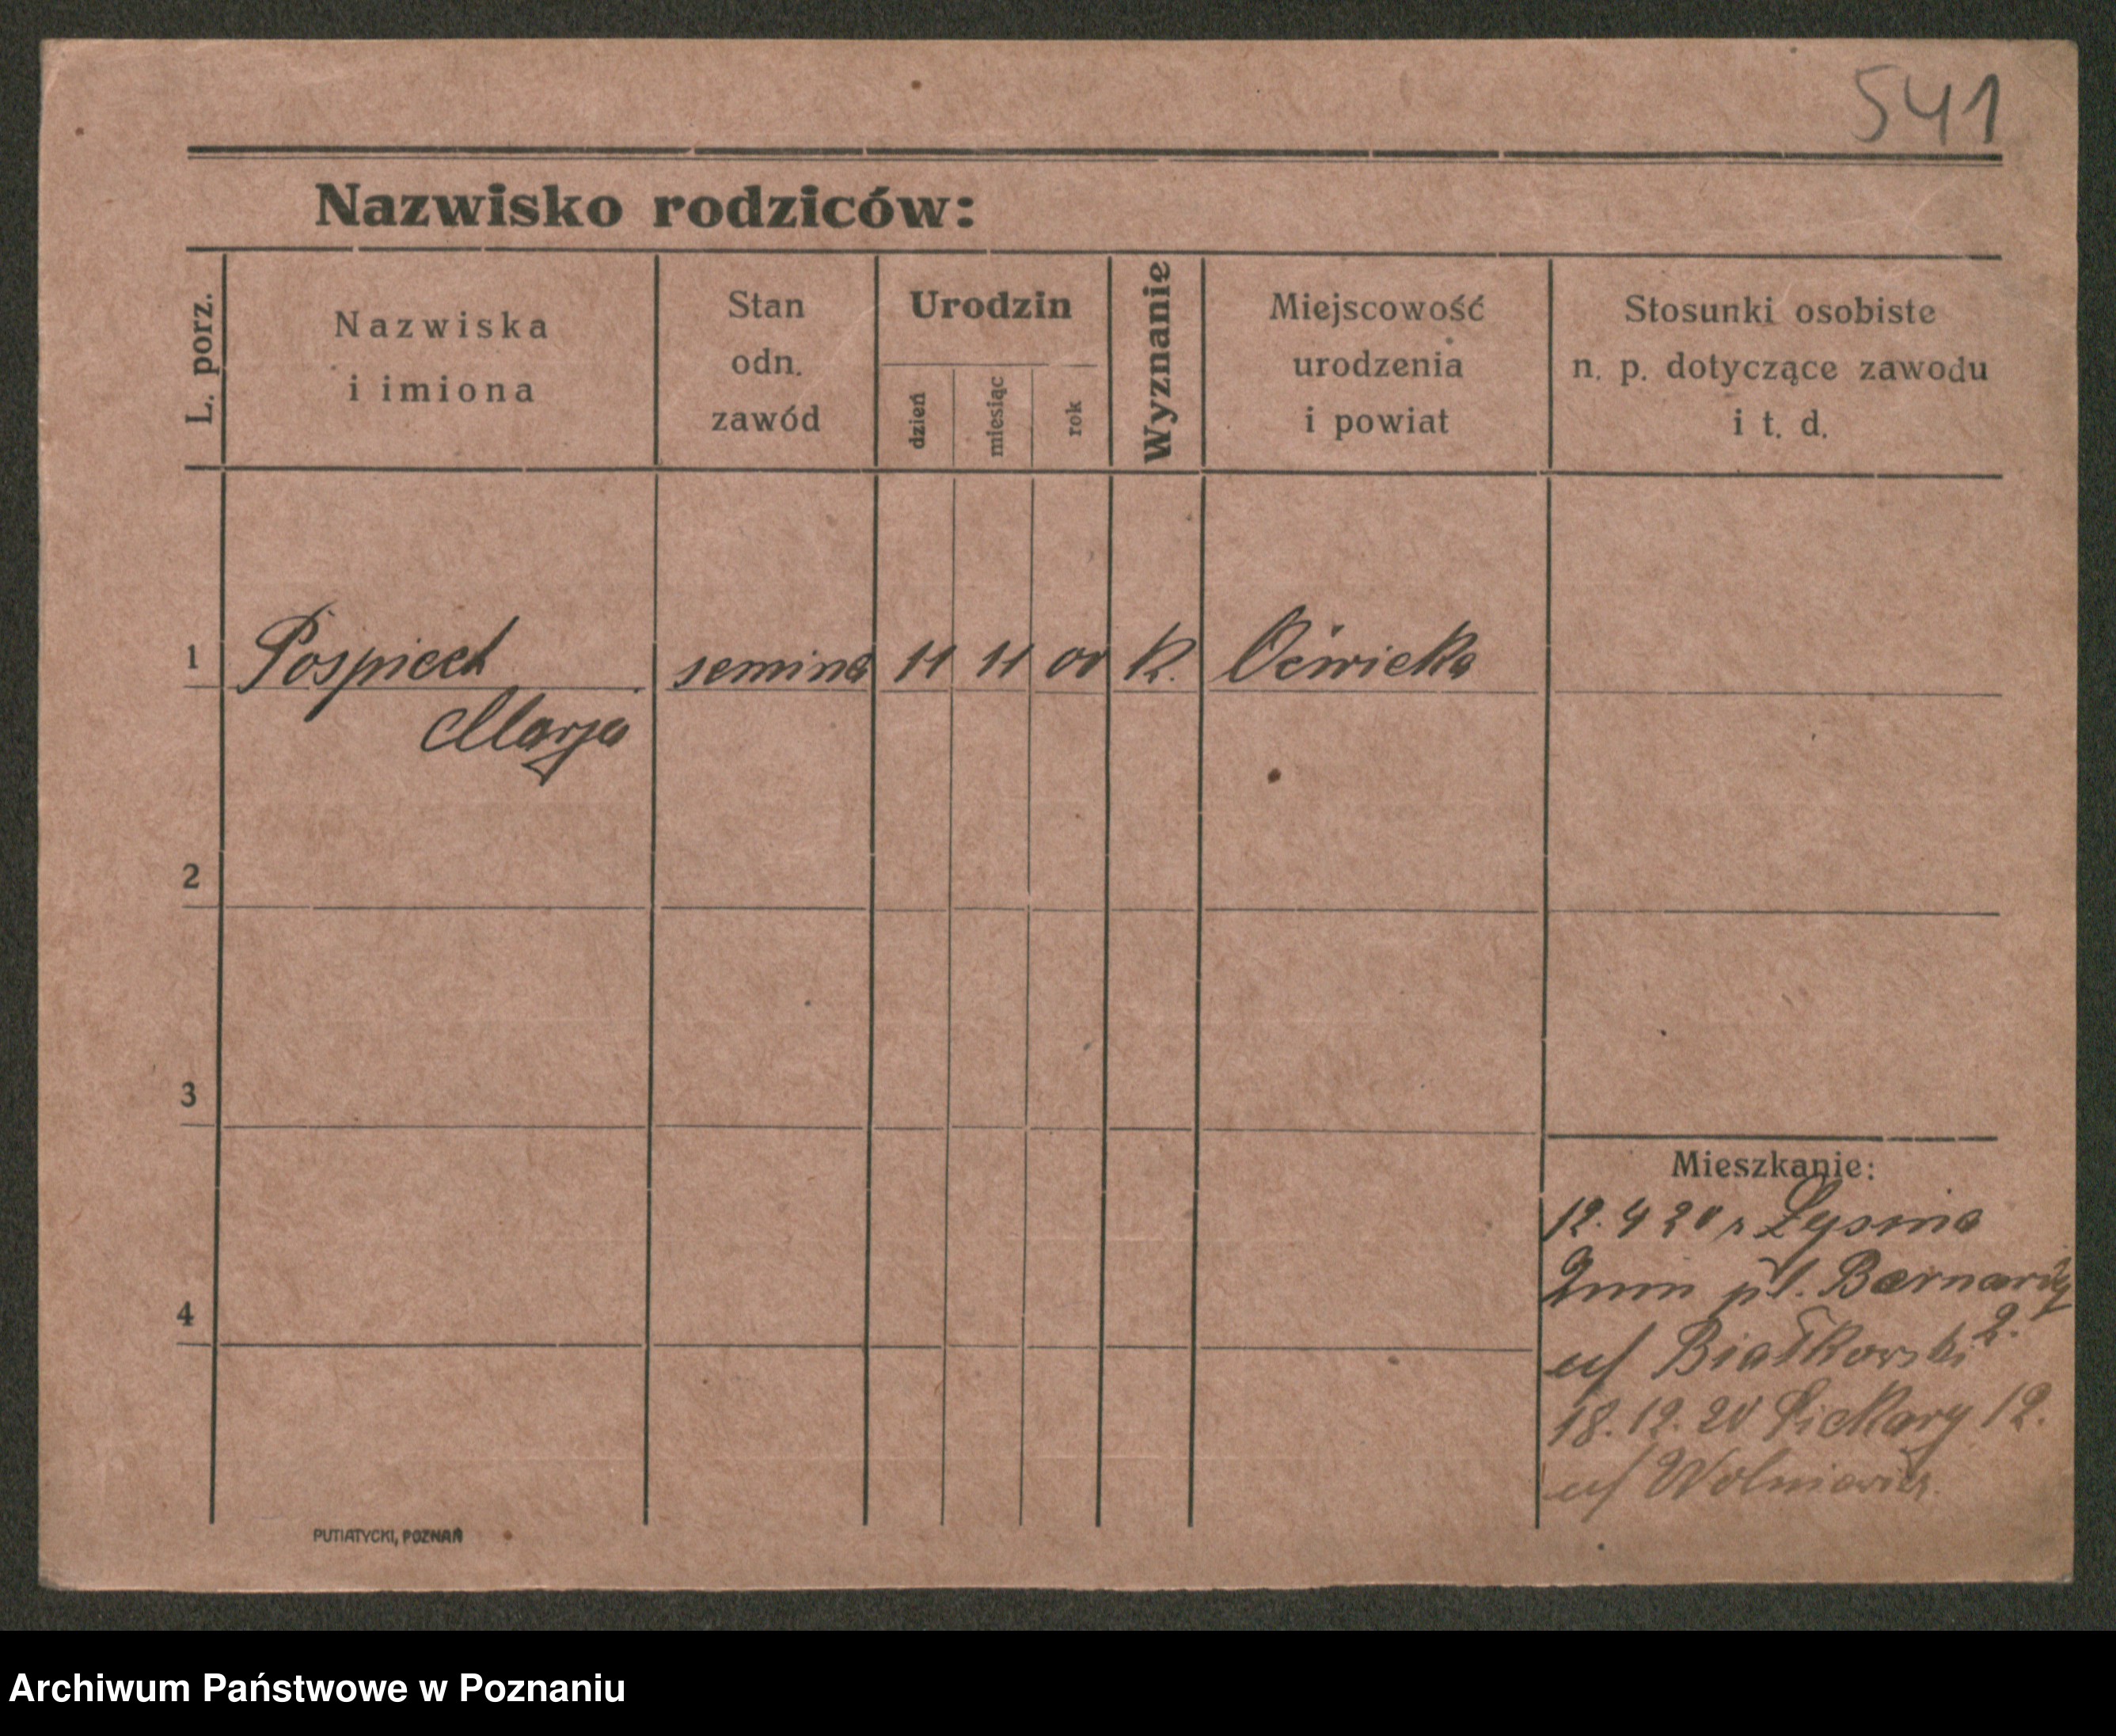 541
Nazwisko rodziców:
L. porz.
Nazwiska
i imiona
Stan
odn.
zawód
Urodzin
dzień
miesiąc
rok
Wyznanie
Miejscowość
urodzenia
i powiat
Stosunki osobiste
n. p. dotyczące zawodu
i t. d.
1 Pospiech semina 11 11 00 K. Oćwieka
Marja
2
3
Mieszkanie:
12. 4 20 z
pl. Bernardy
4
2.
u/ Białkowski
18. 12. 20 Piekary 12.
u/ Wolniewicz
PUTIATYCKI, POZNAŃ
Archiwum Państwowe w Poznaniu